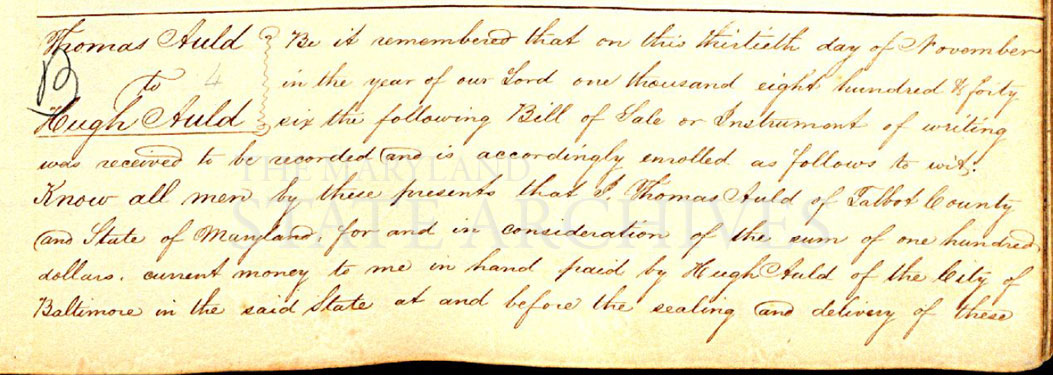 Thomas Auld Be it remembered that on this thirtieth day of November
B to 4 in the year of our Lord one thousand eight hundred & forty
Hugh Auld six the following Bill of Sale or Instrument of writing
was received to be recorded and is accordingly enrolled as follows to wit;
Know all men by these presents that I, Thomas Auld of Talbot County
and State of Maryland, for and in consideration of the sum of one hundred
dollars. current money to me in hand paid by Hugh Auld of the City of
Baltimore in the said State at and before the sealing and delivery of these
THE MARYLAND
STATE ARCHIVES